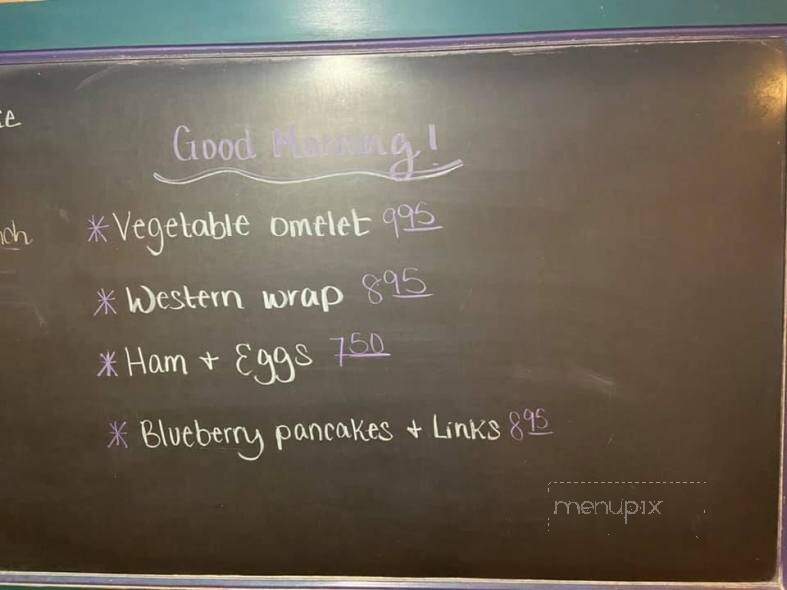 Good Morning!
* Vegetable omelet 995
* Western wrap 895
* Ham + Eggs 750
* Blueberry pancakes + Links 895
menupix